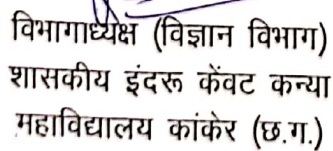 विभागाध्यक्ष (विज्ञान विभाग)
शासकीय इंदरू केंवट कन्या
महाविद्यालय कांकेर (छ.ग.)